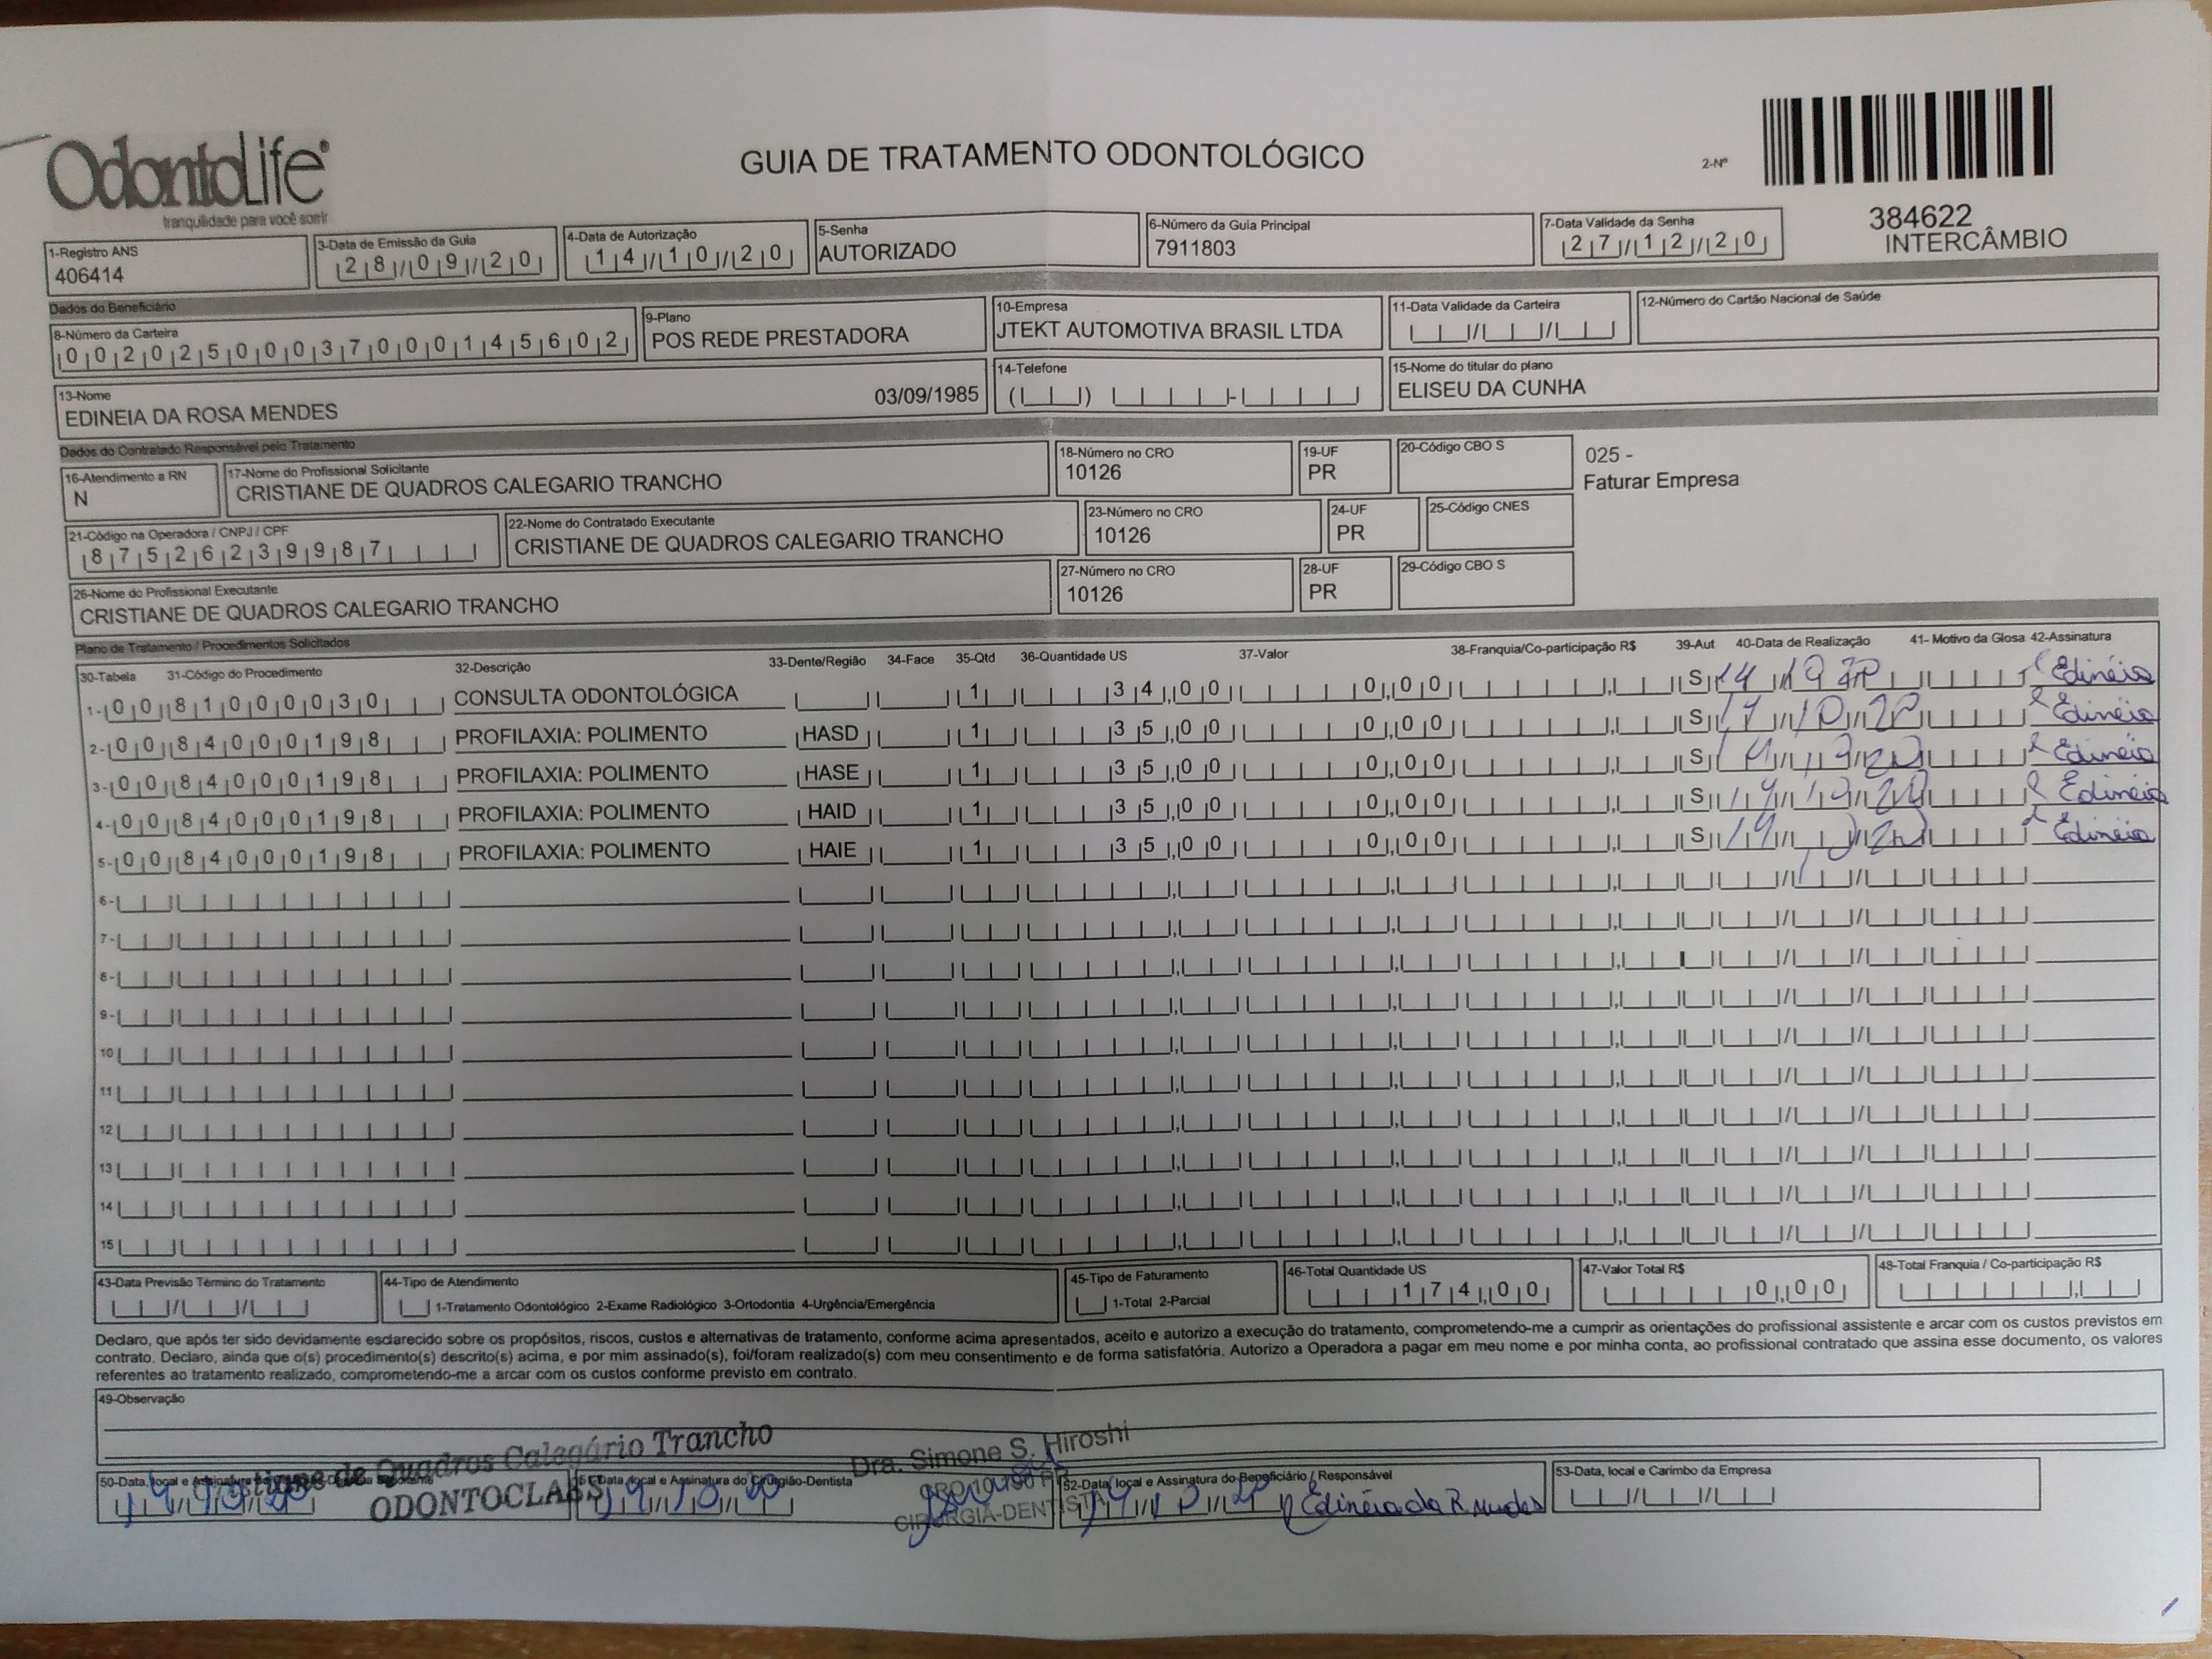 OdontoLife®
tranquilidade para você sorrir
GUIA DE TRATAMENTO ODONTOLÓGICO
2-Nº
384622
INTERCÂMBIO
1-Registro ANS
406414
3-Data de Emissão da Guia
28/09/20
4-Data de Autorização
14/10/20
5-Senha
AUTORIZADO
6-Número da Guia Principal
7911803
7-Data Validade da Senha
27/12/20
Dados do Beneficiário
8-Número da Carteira
00202500037000145602
9-Plano
POS REDE PRESTADORA
10-Empresa
JTEKT AUTOMOTIVA BRASIL LTDA
11-Data Validade da Carteira
12-Número do Cartão Nacional de Saúde
13-Nome
EDINEIA DA ROSA MENDES 03/09/1985
14-Telefone
15-Nome do titular do plano
ELISEU DA CUNHA
Dados do Contratado Responsável pelo Tratamento
16-Atendimento a RN
N
17-Nome do Profissional Solicitante
CRISTIANE DE QUADROS CALEGARIO TRANCHO
18-Número no CRO
10126
19-UF
PR
20-Código CBO S
025 -
Faturar Empresa
21-Código na Operadora / CNPJ / CPF
87526239987
22-Nome do Contratado Executante
CRISTIANE DE QUADROS CALEGARIO TRANCHO
23-Número no CRO
10126
24-UF
PR
25-Código CNES
26-Nome do Profissional Executante
CRISTIANE DE QUADROS CALEGARIO TRANCHO
27-Número no CRO
10126
28-UF
PR
29-Código CBO S
Plano de Tratamento / Procedimentos Solicitados
30-Tabela 31-Código do Procedimento 32-Descrição 33-Dente/Região 34-Face 35-Qtd 36-Quantidade US 37-Valor 38-Franquia/Co-participação R$ 39-Aut 40-Data de Realização 41- Motivo da Glosa 42-Assinatura
1- 00 81000030 CONSULTA ODONTOLÓGICA 1 34,00 0,00 S Edinéia
2- 00 84000198 PROFILAXIA: POLIMENTO HASD 1 35,00 0,00 S Edinéia
3- 00 84000198 PROFILAXIA: POLIMENTO HASE 1 35,00 0,00 S Edinéia
4- 00 84000198 PROFILAXIA: POLIMENTO HAID 1 35,00 0,00 S Edinéia
5- 00 84000198 PROFILAXIA: POLIMENTO HAIE 1 35,00 0,00 S Edinéia
6-
7-
8-
9-
10
11
12
13
14
15
43-Data Previsão Término do Tratamento
44-Tipo de Atendimento
1-Tratamento Odontológico 2-Exame Radiológico 3-Ortodontia 4-Urgência/Emergência
45-Tipo de Faturamento
1-Total 2-Parcial
46-Total Quantidade US
174,00
47-Valor Total R$
0,00
48-Total Franquia / Co-participação R$
Declaro, que após ter sido devidamente esclarecido sobre os propósitos, riscos, custos e alternativas de tratamento, conforme acima apresentados, aceito e autorizo a execução do tratamento, comprometendo-me a cumprir as orientações do profissional assistente e arcar com os custos previstos em
contrato. Declaro, ainda que o(s) procedimento(s) descrito(s) acima, e por mim assinado(s), foi/foram realizado(s) com meu consentimento e de forma satisfatória. Autorizo a Operadora a pagar em meu nome e por minha conta, ao profissional contratado que assina esse documento, os valores
referentes ao tratamento realizado, comprometendo-me a arcar com os custos conforme previsto em contrato.
49-Observação
de Quadros Calegário Trancho
ODONTOCLASS
Dra. Simone S. Hiroshi
CIRURGIÃ-DENTISTA
50-Data, local e Assinatura
51-Data, local e Assinatura do Cirurgião-Dentista
52-Data, local e Assinatura do Beneficiário / Responsável
14/10/20 Edinéia da R. Mendes
53-Data, local e Carimbo da Empresa